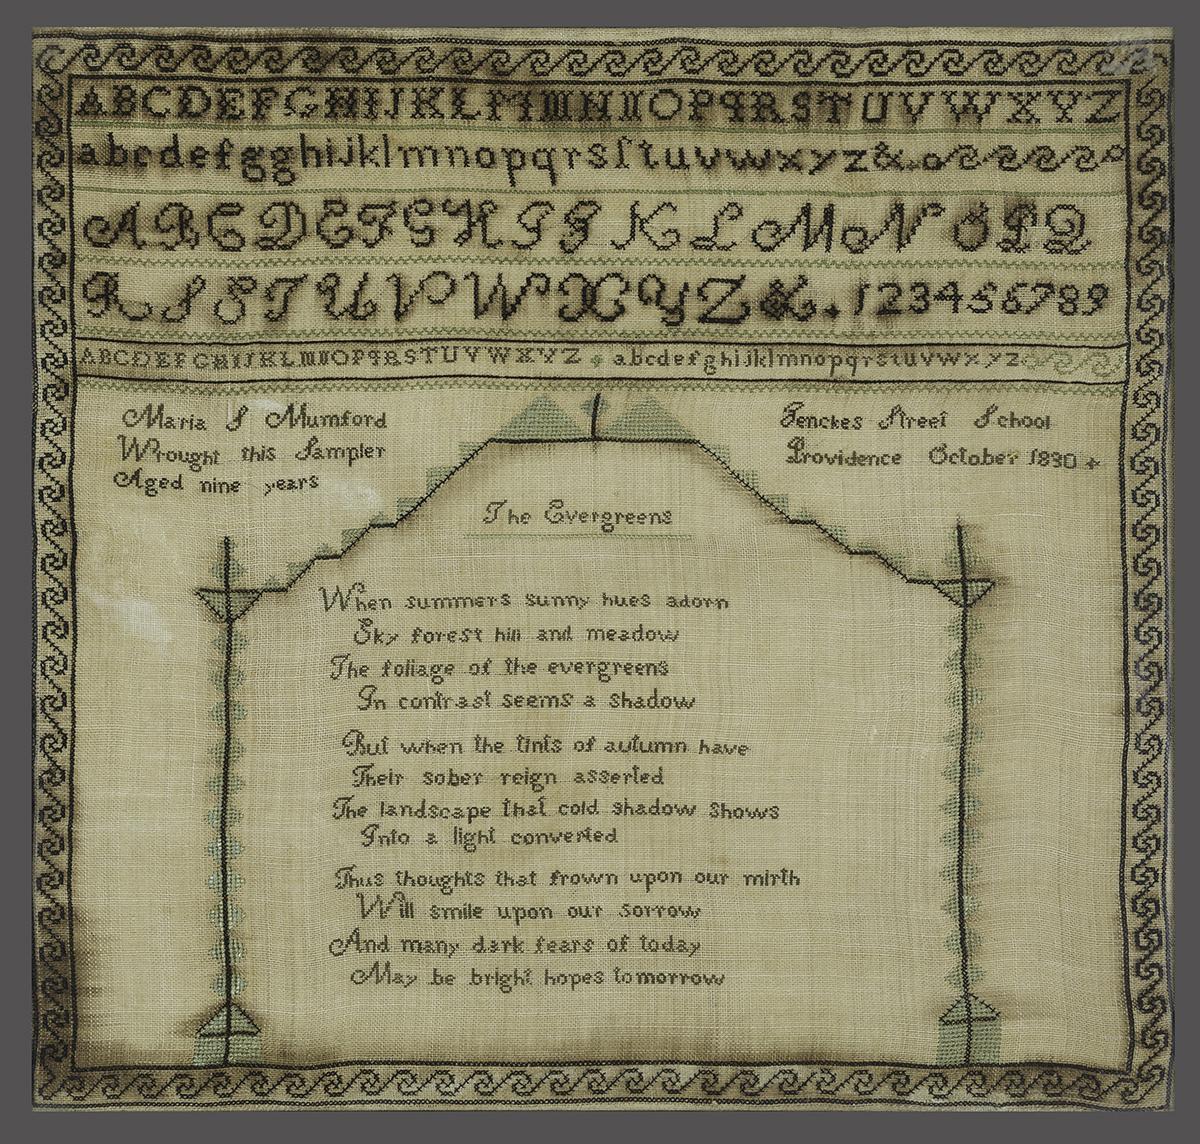 ABCDEFGHIJKLMNOPQRSTUVWXYZ
abcdefgghijklmnopqrsſtuvwxyz&.
ABCDEFGHIJKLMNOPQ
RSSTUVWXYZ&. 123456789
ABCDEFGHIJKLMNOPQRSTUVWXYZ abcdefghijklmnopqrstuvwxyz
Maria S Mumford
Wrought this Sampler
Aged nine years
Jenckes Street School
Providence October 1830
The Evergreens
When summers sunny hues adorn
Sky forest hill and meadow
The foliage of the evergreens
In contrast seems a shadow
But when the tints of autumn have
Their sober reign asserted
The landscape that cold shadow shows
Into a light converted
Thus thoughts that frown upon our mirth
Will smile upon our sorrow
And many dark fears of today
May be bright hopes tomorrow